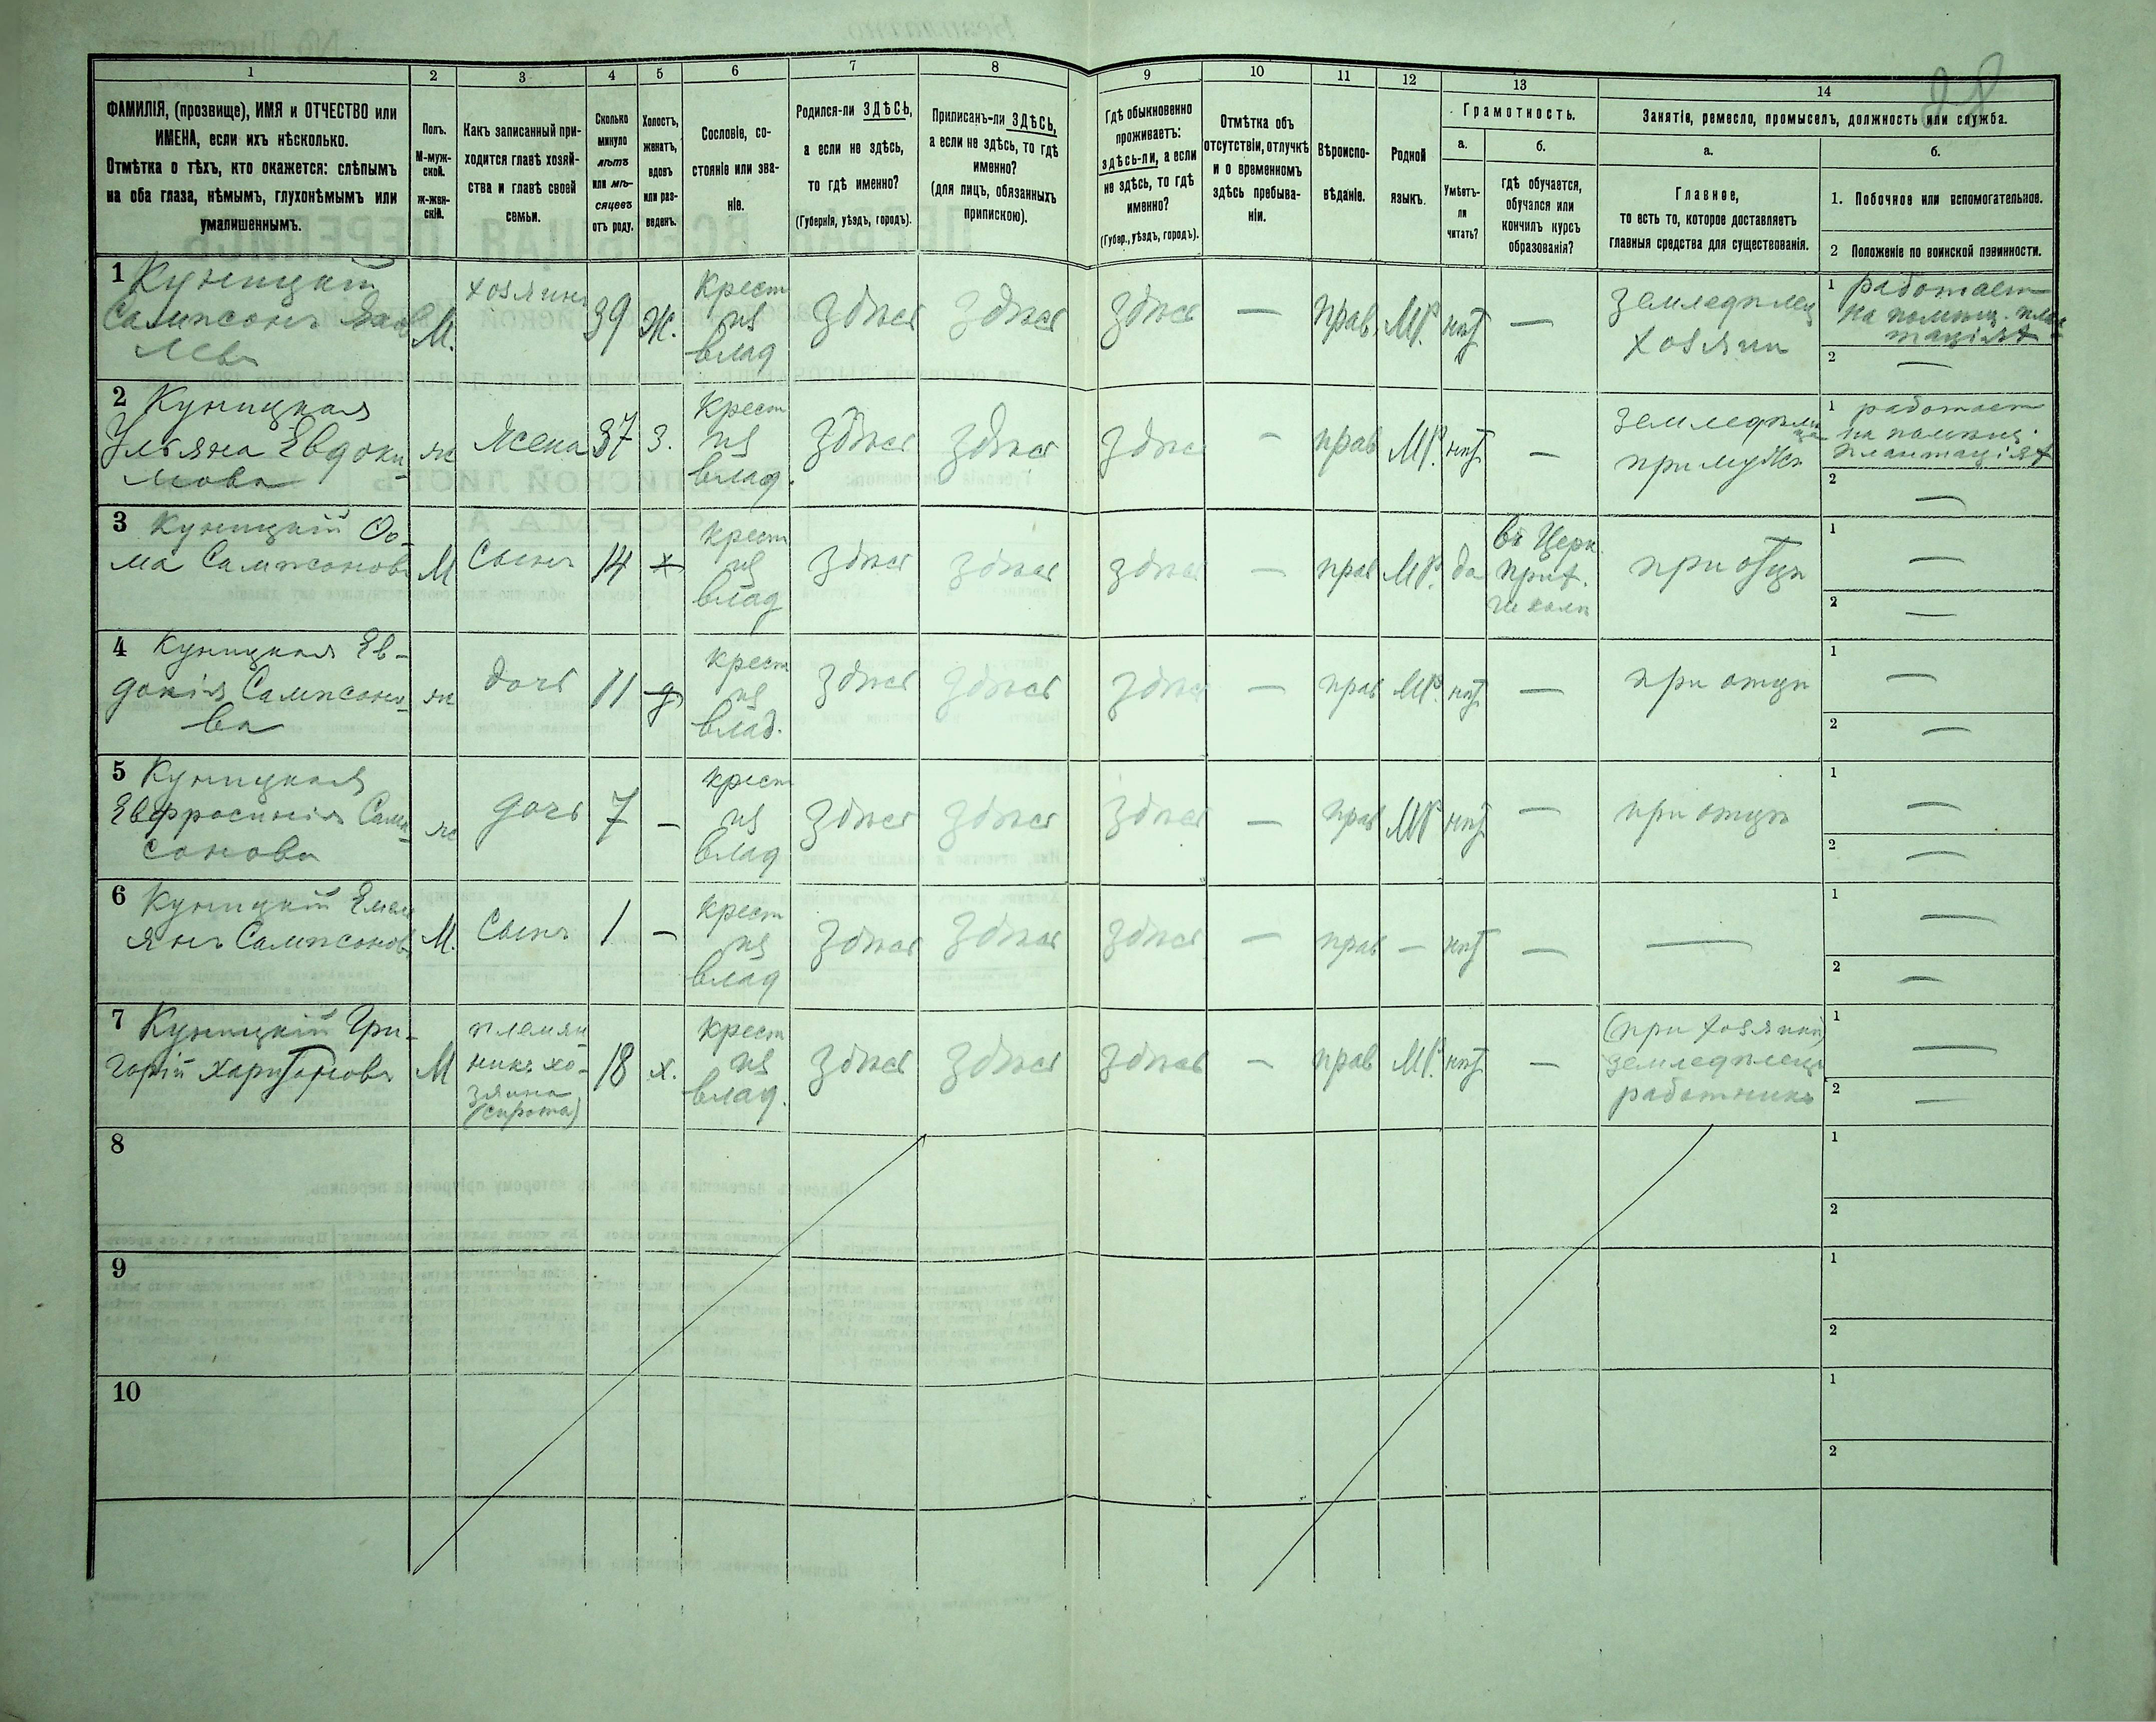 1 2 3 4 5 6 7 8 9 10 11 12 13 14
ФАМИЛІЯ, (прозвище), ИМЯ и ОТЧЕСТВО или
ИМЕНА, если ихъ нѣсколько.
Отмѣтка о тѣхъ, кто окажется: слѣпымъ
на оба глаза, нѣмымъ, глухонѣмымъ или
умалишеннымъ.
Полъ.
М-муж-
ской.
ж-жен-
скій.
Какъ записанный при-
ходится главѣ хозяй-
ства и главѣ своей
семьи.
Сколько
минуло
лѣтъ
или мѣ-
сяцевъ
отъ роду.
Холостъ,
женатъ,
вдовъ
или раз-
веденъ.
Сословіе, со-
стояніе или зва-
ніе.
Родился-ли ЗДѢСЬ,
а если не здѣсь,
то гдѣ именно?
(Губернія, уѣздъ, городъ).
Приписанъ-ли ЗДѢСЬ,
а если не здѣсь, то гдѣ
именно?
(для лицъ, обязанныхъ
припискою).
Гдѣ обыкновенно
проживаетъ:
здѣсь-ли, а если
не здѣсь, то гдѣ
именно?
(Губер., уѣздъ, городъ).
Отмѣтка объ
отсутствіи, отлучкѣ
и о временномъ
здѣсь пребыва-
ніи.
Вѣроиспо-
вѣданіе.
Родной
языкъ.
Грамотность.
а.
Умѣетъ-
ли
читать?
б.
гдѣ обучается,
обучался или
кончилъ курсъ
образованія?
Занятіе, ремесло, промыселъ, должность или служба.
а.
Главное,
то есть то, которое доставляетъ
главныя средства для существованія.
б.
1. Побочное или вспомогательное.
2 Положеніе по воинской повинности.
1 Куницкій
Сампсонъ
М.
хозяинъ
39
Ж.
Крест
из
влад
здѣсь
здѣсь
здѣсь
—
прав.
МР.
нѣт
—
земледѣлец
хозяин
1 работает
на помѣщ. план
таціях
2 —
2 Куницкая
Ульяна Евдоки-
мова
ж
жена
37
З.
Крест
из
влад.
здѣсь
здѣсь
здѣсь
-
прав
МР.
нѣт
—
земледѣли
ца
при мужѣ
1 работает
на помѣщ.
плантаціях
2 —
3 Куницкій Ѳо-
ма Сампсоновъ
М
Сынъ
14
х
крест
из
влад
здѣсь
здѣсь
здѣсь
—
прав
МР.
да
въ Церк.
прих.
школѣ
при отцѣ
1 —
2 —
4 Куницкая Ев-
докія Сампсоно-
ва
ж
дочь
11
крест
из
влад.
здѣсь
здѣсь
здѣсь
—
прав
МР
нѣт
—
при отцѣ
1 —
2 —
5 Куницкая
Евфросинія Самп-
сонова
ж
дочь
7
—
крест
из
влад
здѣсь
здѣсь
здѣсь
—
прав
МР
нѣт
—
при отцѣ
1 —
2 —
6 Куницкій Емель
янъ Сампсоновъ
М.
Сынъ
1
—
крест
из
влад
здѣсь
здѣсь
здѣсь
—
прав
—
нѣт
—
—
1 —
2 —
7 Куницкій Гри-
горій Харитоновъ
М
племян
никъ хо-
зяина
(сирота)
18
х.
крест
из
влад.
здѣсь
здѣсь
здѣсь
-
прав
МР.
нѣт
—
(при хозяинѣ)
земледѣлец
работникъ
1 —
2 —
8
1
2
9
1
2
10
1
2